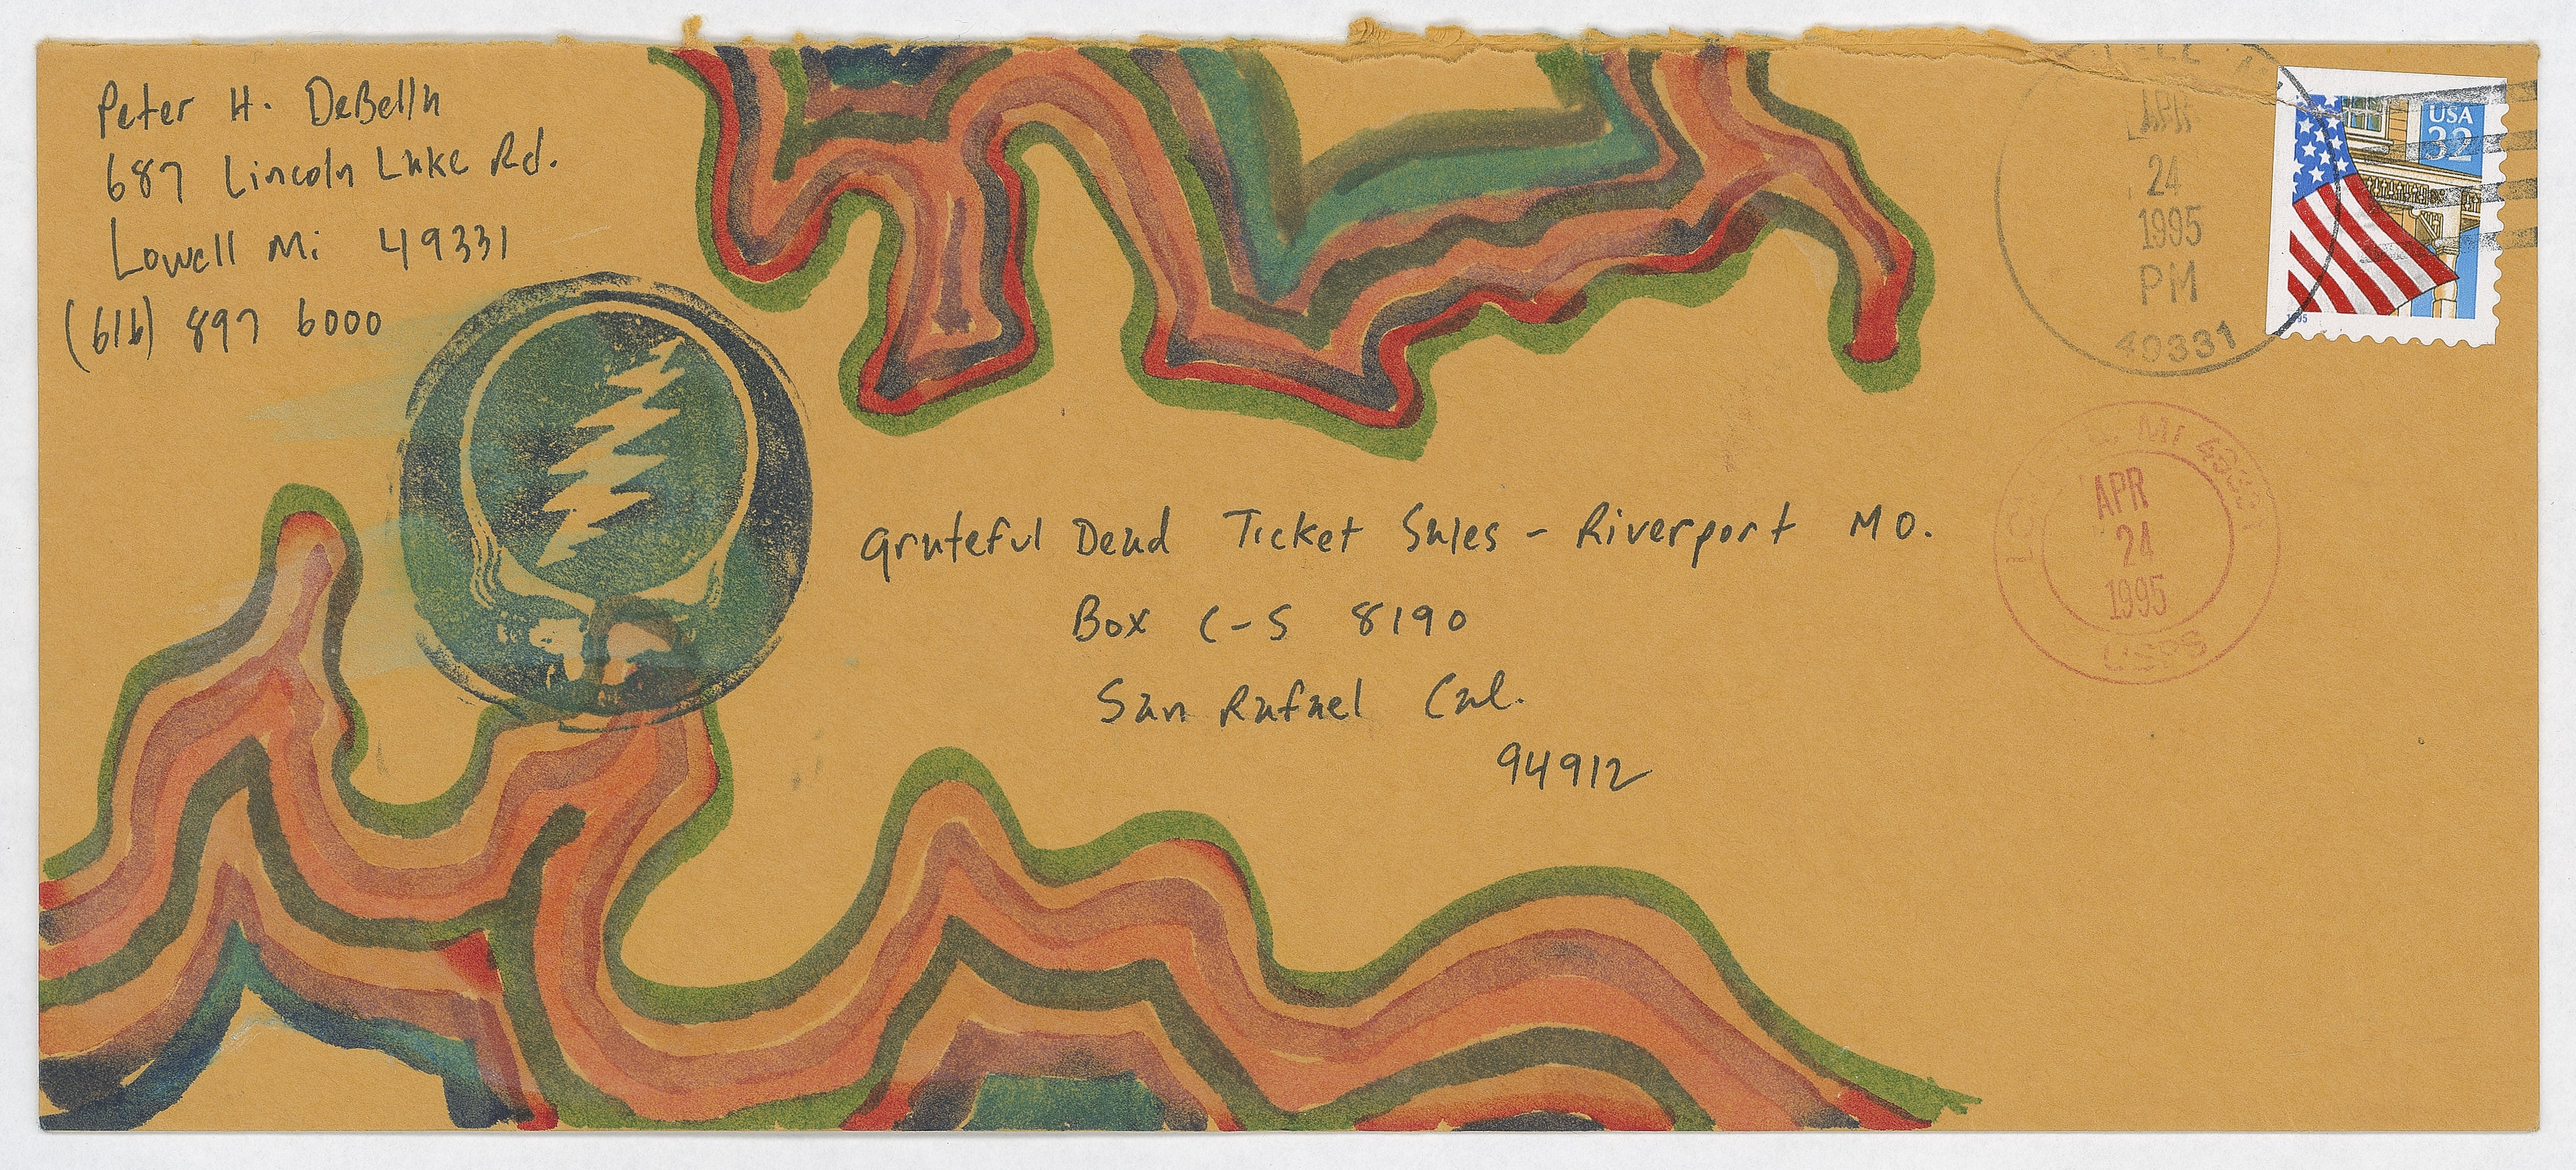 Peter H. DeBella
687 Lincoln Lake Rd.
Lowell Mi 49331
(616) 897 6000
APR
24
1995
PM
49331
USA
32
1995
Grateful Dead Ticket Sales - Riverport MO.
Box C-S 8190
San Rafael Cal.
94912
LOWELL, MI 49331
APR
24
1995
USPS